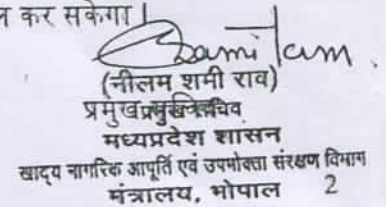 कर सकेगा।
(नीलम शमी राव)
प्रमुख सचिव
मध्यप्रदेश शासन
खाद्य नागरिक आपूर्ति एवं उपभोक्ता संरक्षण विभाग
मंत्रालय, भोपाल 2